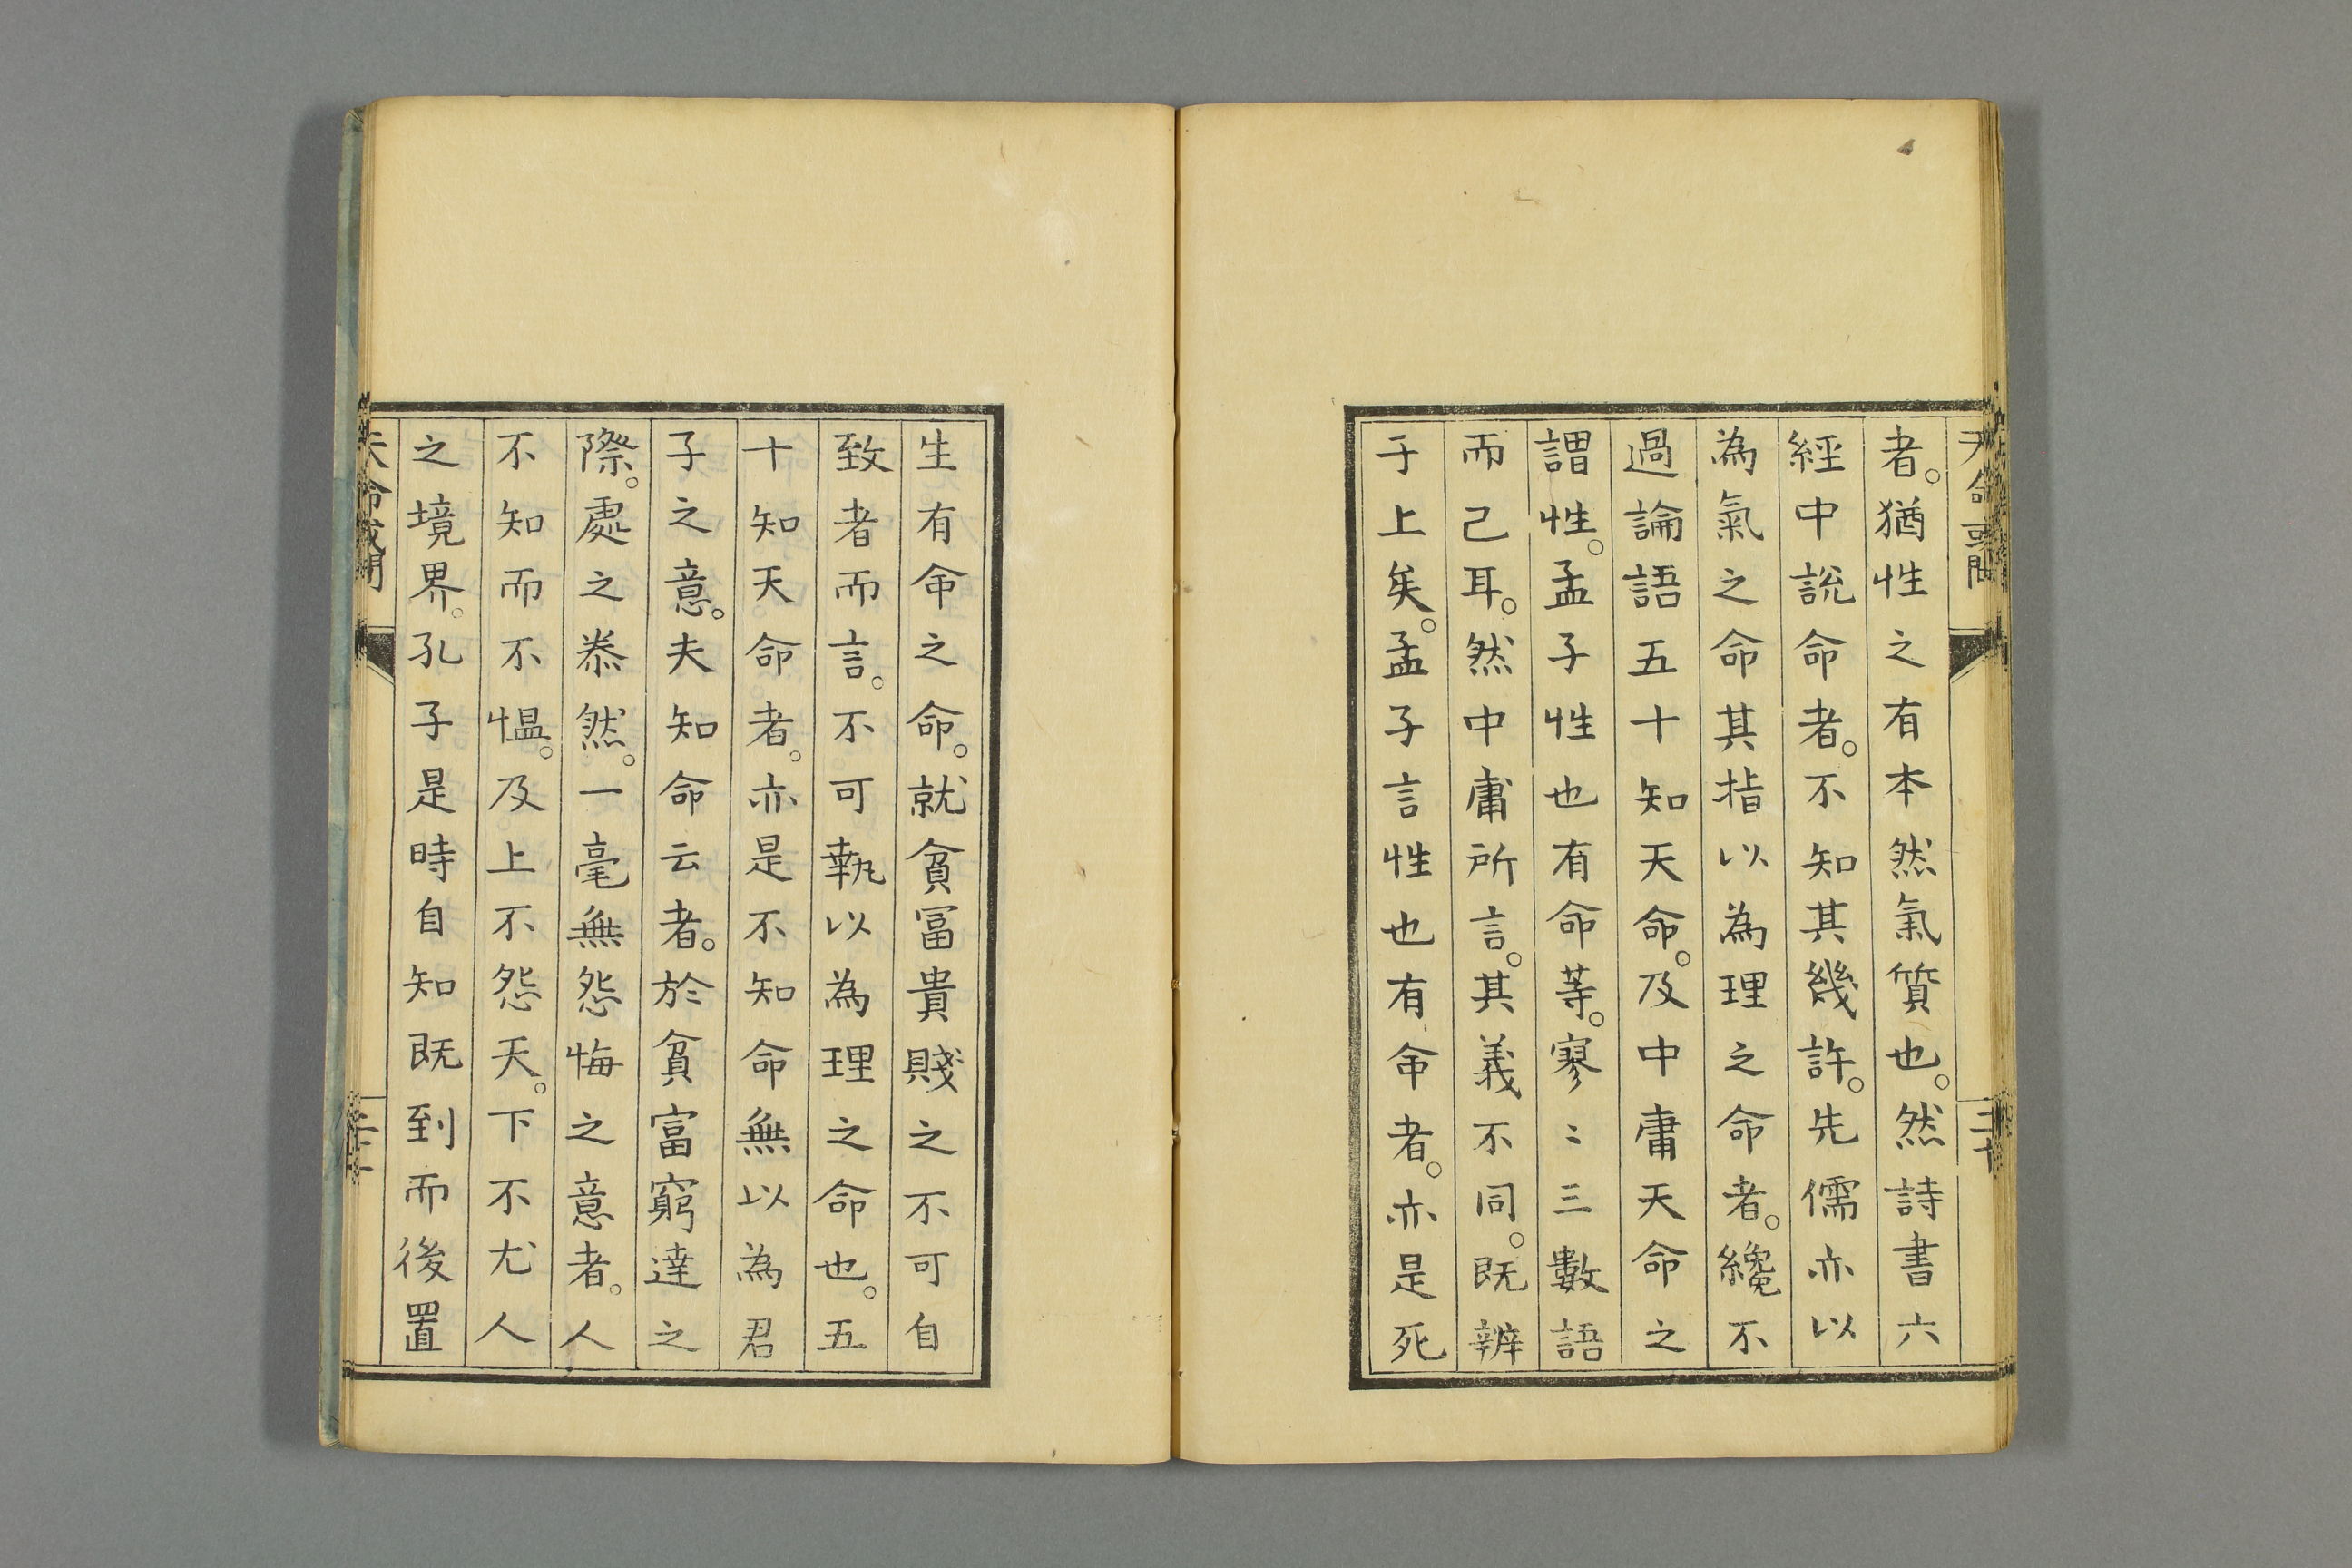 天命或問
三十
者。猶性之有本然氣質也。然詩書六
經中說命者。不知其幾許。先儒亦以
為氣之命其指以為理之命者。纔不
過論語五十知天命。及中庸天命之
謂性。孟子性也有命等。寥〻三數語
而已耳。然中庸所言。其義不同。既辨
于上矣。孟子言性也有命者。亦是死
生有命之命。就貧富貴賤之不可自
致者而言。不可執以為理之命也。五
十知天命者。亦是不知命無以為君
子之意。夫知命云者。於貧富窮達之
際。處之泰然。一毫無怨悔之意者。人
不知而不慍。及上不怨天。下不尤人
之境界。孔子是時自知既到而後置
天命或問